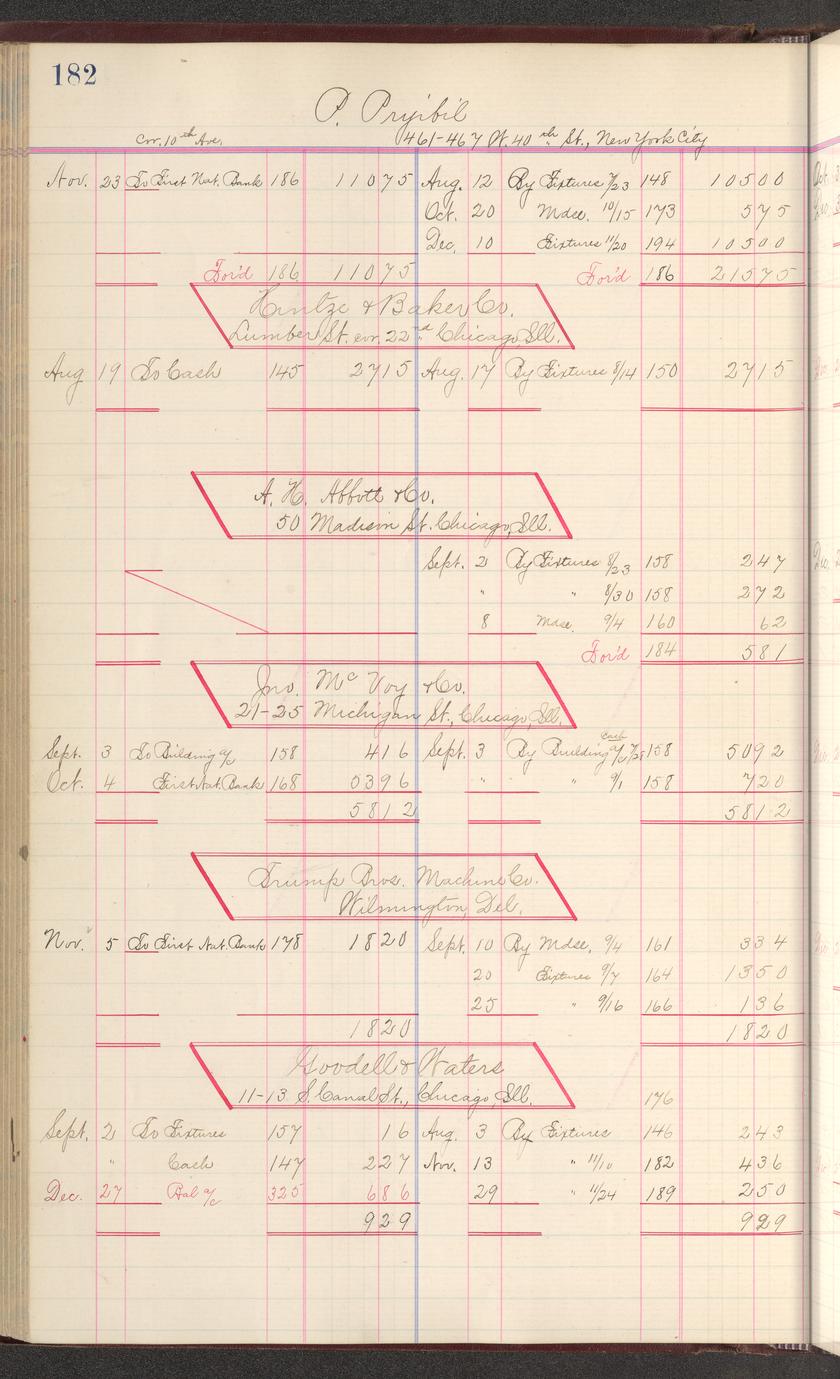 182
P. Pryibil
Cor. 10th Ave. 461-467 W. 40th St., New York City
Nov. 23 To First Nat. Bank 186 11075 Aug. 12 By Fixtures 7/23 148 10500
Oct. 20 Mdse. 10/15 173 575
Dec. 10 Fixtures 11/20 194 10500
For'd 186 11075 For'd 186 21575
Hintze & Baker Co.
Lumber St. cor. 22nd Chicago, Ill.
Aug 19 To Cash 145 2715 Aug. 17 By Fixtures 8/14 150 2715
A. H. Abbott & Co.
50 Madison St. Chicago, Ill.
Sept. 2 By Fixtures 8/23 158 247
" " 8/30 158 272
8 Mdse. 9/4 160 62
For'd 184 581
Jno. McVoy & Co.
21-25 Michigan St., Chicago, Ill.
Sept. 3 To Building a/c 158 416 Sept. 3 By Building a/c 158 5092
Oct. 4 First Nat. Bank 168 5396 " " 9/1 158 720
5812 5812
Trump Bros. Machine Co.
Wilmington, Del.
Nov. 5 To First Nat. Bank 178 1820 Sept. 10 By Mdse. 9/4 161 334
20 Fixtures 9/7 164 1350
25 " 9/16 166 136
1820 1820
Goodell & Waters
11-13 S. Canal St., Chicago, Ill. 176
Sept. 2 To Fixtures 157 16 Aug. 3 By Fixtures 146 243
" Cash 147 227 Nov. 13 " 11/10 182 436
Dec. 27 Bal a/c 325 686 29 " 11/24 189 250
929 929